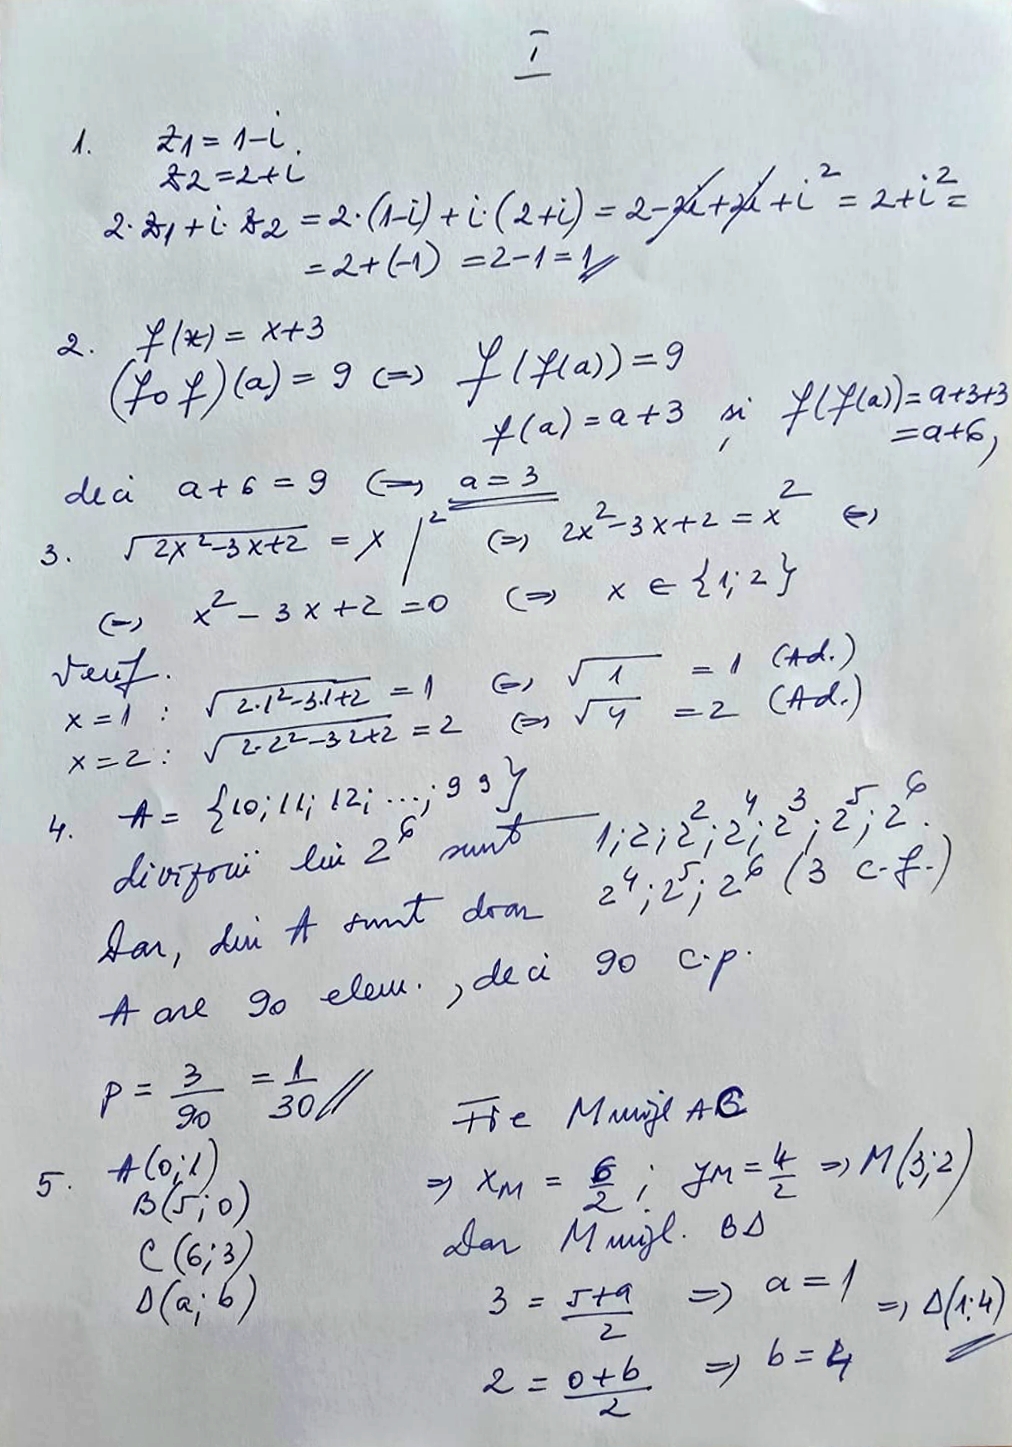 I
1. z1 = 1-i.
z2 = 2+i
2·z1 + i·z2 = 2·(1-i) + i·(2+i) = 2-2i+2i+i² = 2+i² =
= 2+(-1) = 2-1 = 1
2. f(x) = x+3
(f∘f)(a) = 9 (=) f(f(a)) = 9
f(a) = a+3 și f(f(a)) = a+3+3
= a+6,
deci a+6 = 9 (=) a = 3
3. √(2x²-3x+2) = x |² (=) 2x²-3x+2 = x² (=)
(=) x²-3x+2 = 0 (=) x ∈ {1; 2}
Verif.
x=1 : √(2·1²-3·1+2) = 1 (=) √1 = 1 (Ad.)
x=2 : √(2·2²-3·2+2) = 2 (=) √4 = 2 (Ad.)
4. A = {10; 11; 12; ...; 99}
divizorii lui 2⁶ sunt 1; 2; 2²; 2⁴; 2³; 2⁵; 2⁶.
Dar, din A sunt doar 2⁴; 2⁵; 2⁶ (3 c.f.)
A are 90 elem., deci 90 c.p.
p = 3/90 = 1/30
Fie M mijl AC
5. A(0;1)
B(5;0)
C(6;3)
D(a;b)
=> xM = 6/2 ; yM = 4/2 => M(3;2)
Dar M mijl. BD
3 = (5+a)/2 => a = 1
=> D(1;4)
2 = (0+b)/2 => b = 4